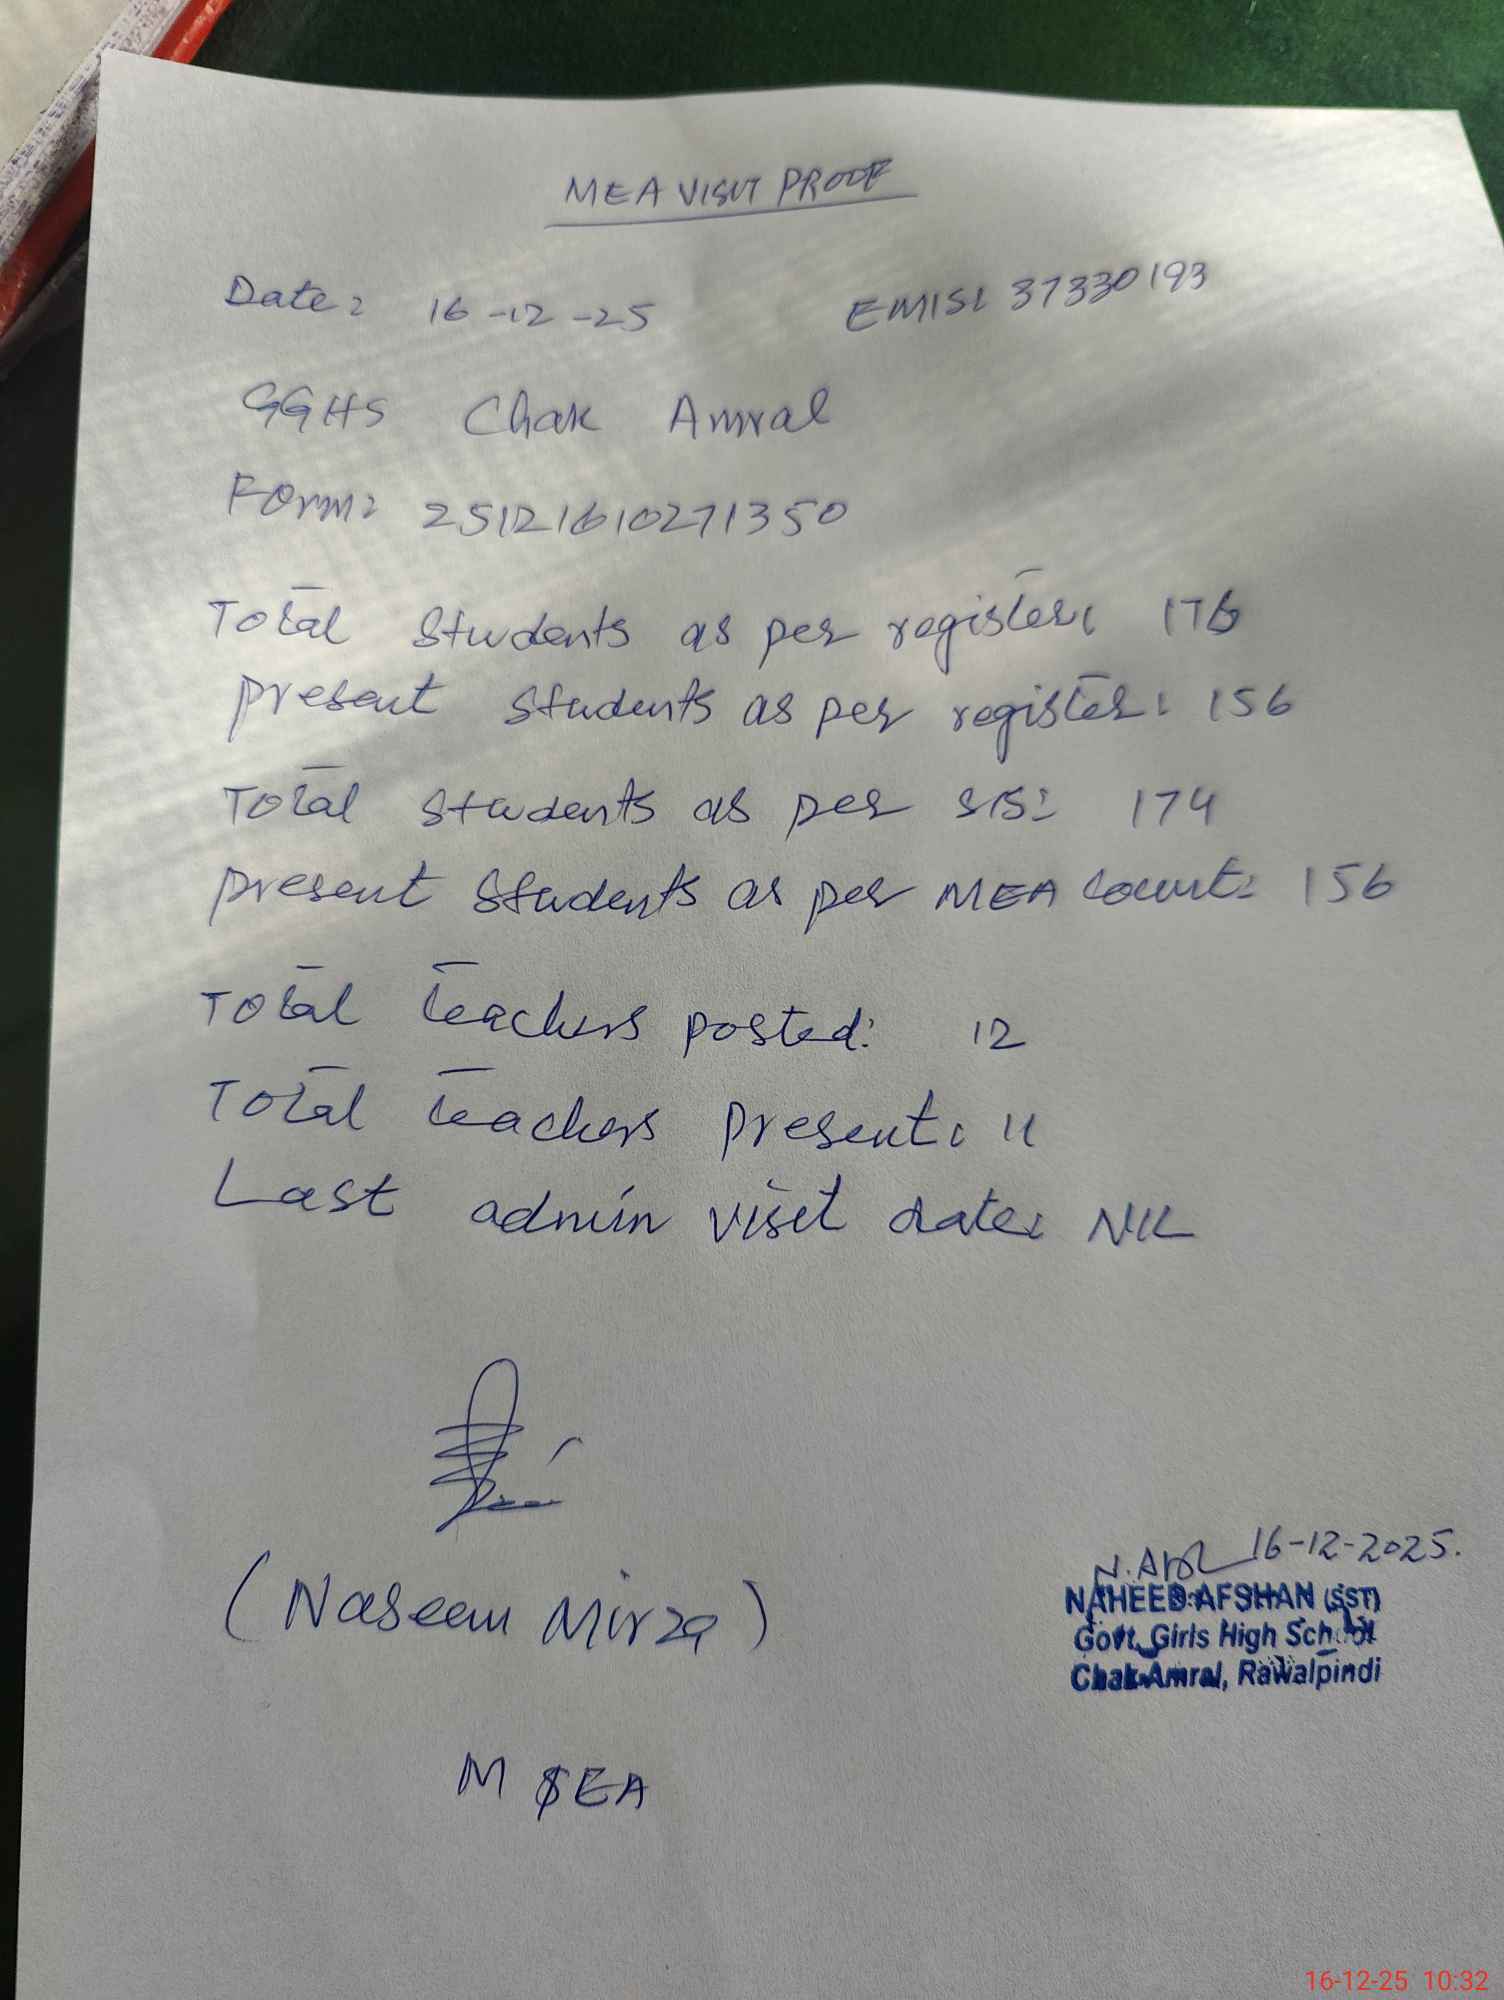 MEA VISIT PROOF
Date: 16-12-25 EMIS: 37330193
GGHS Chak Amral
Form: 25121610271350
Total students as per register: 176
present students as per register: 156
Total students as per SIS: 174
present students as per MEA count: 156
Total teachers posted: 12
Total teachers present: 11
Last admin visit date: NIL
(Naseem Mirza)
MEA
16-12-2025.
NAHEED AFSHAN (SST)
Govt. Girls High School
Chak Amral, Rawalpindi
16-12-25 10:32